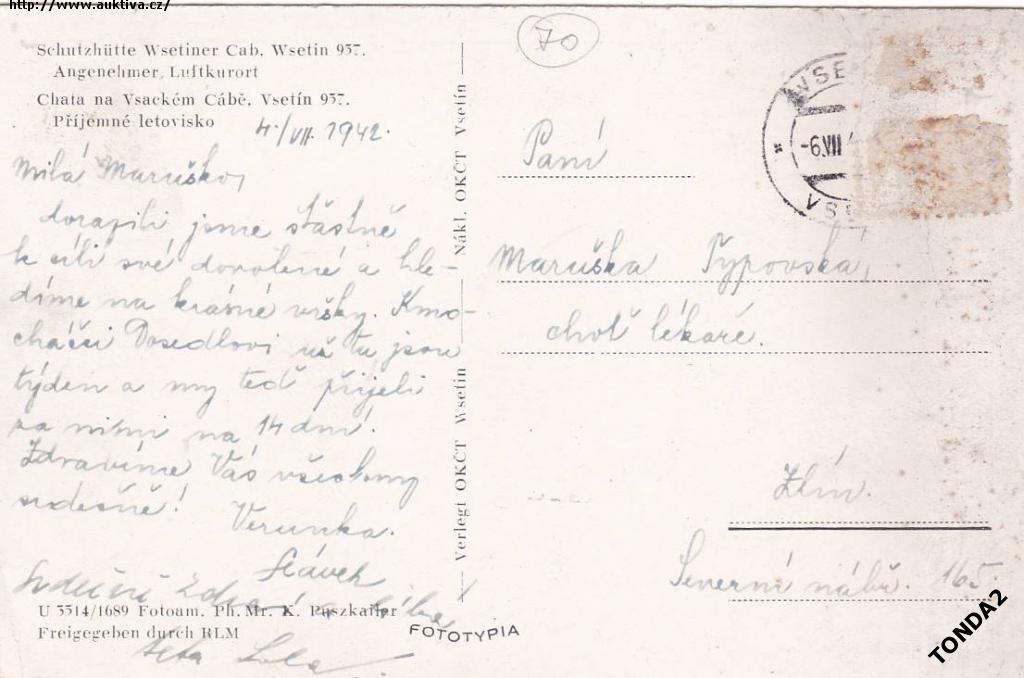 http://www.auktiva.cz/
70
Schutzhütte Wsetiner Cab, Wsetin 957.
Angenehmer Luftkurort
Chata na Vsackém Cábě, Vsetín 957.
Příjemné letovisko
4./VII. 1942.
Milá Maruško,
dorazili jsme šťastně
k cíli své dovolené a hle-
díme na krásné vršky. Kmo-
cháčci Dosedlovi už tu jsou
týden a my teď přijeli
za nimi na 14 dní.
Zdravíme Vás všechny
srdečně! Verunka.
Slávek
Srdečně
teta
U 3514/1689 Fotoam. Ph. Mr. K. Puszkailer
Freigegeben durch RLM
Verlegt OKČT Wsetin Nákl. OKČT Vsetín
FOTOTYPIA
VSE
-6.VII
VSE
Paní
Maruška Typovská,
choť lékaře.
Zlín.
Severní nábř. 165.
TONDA2